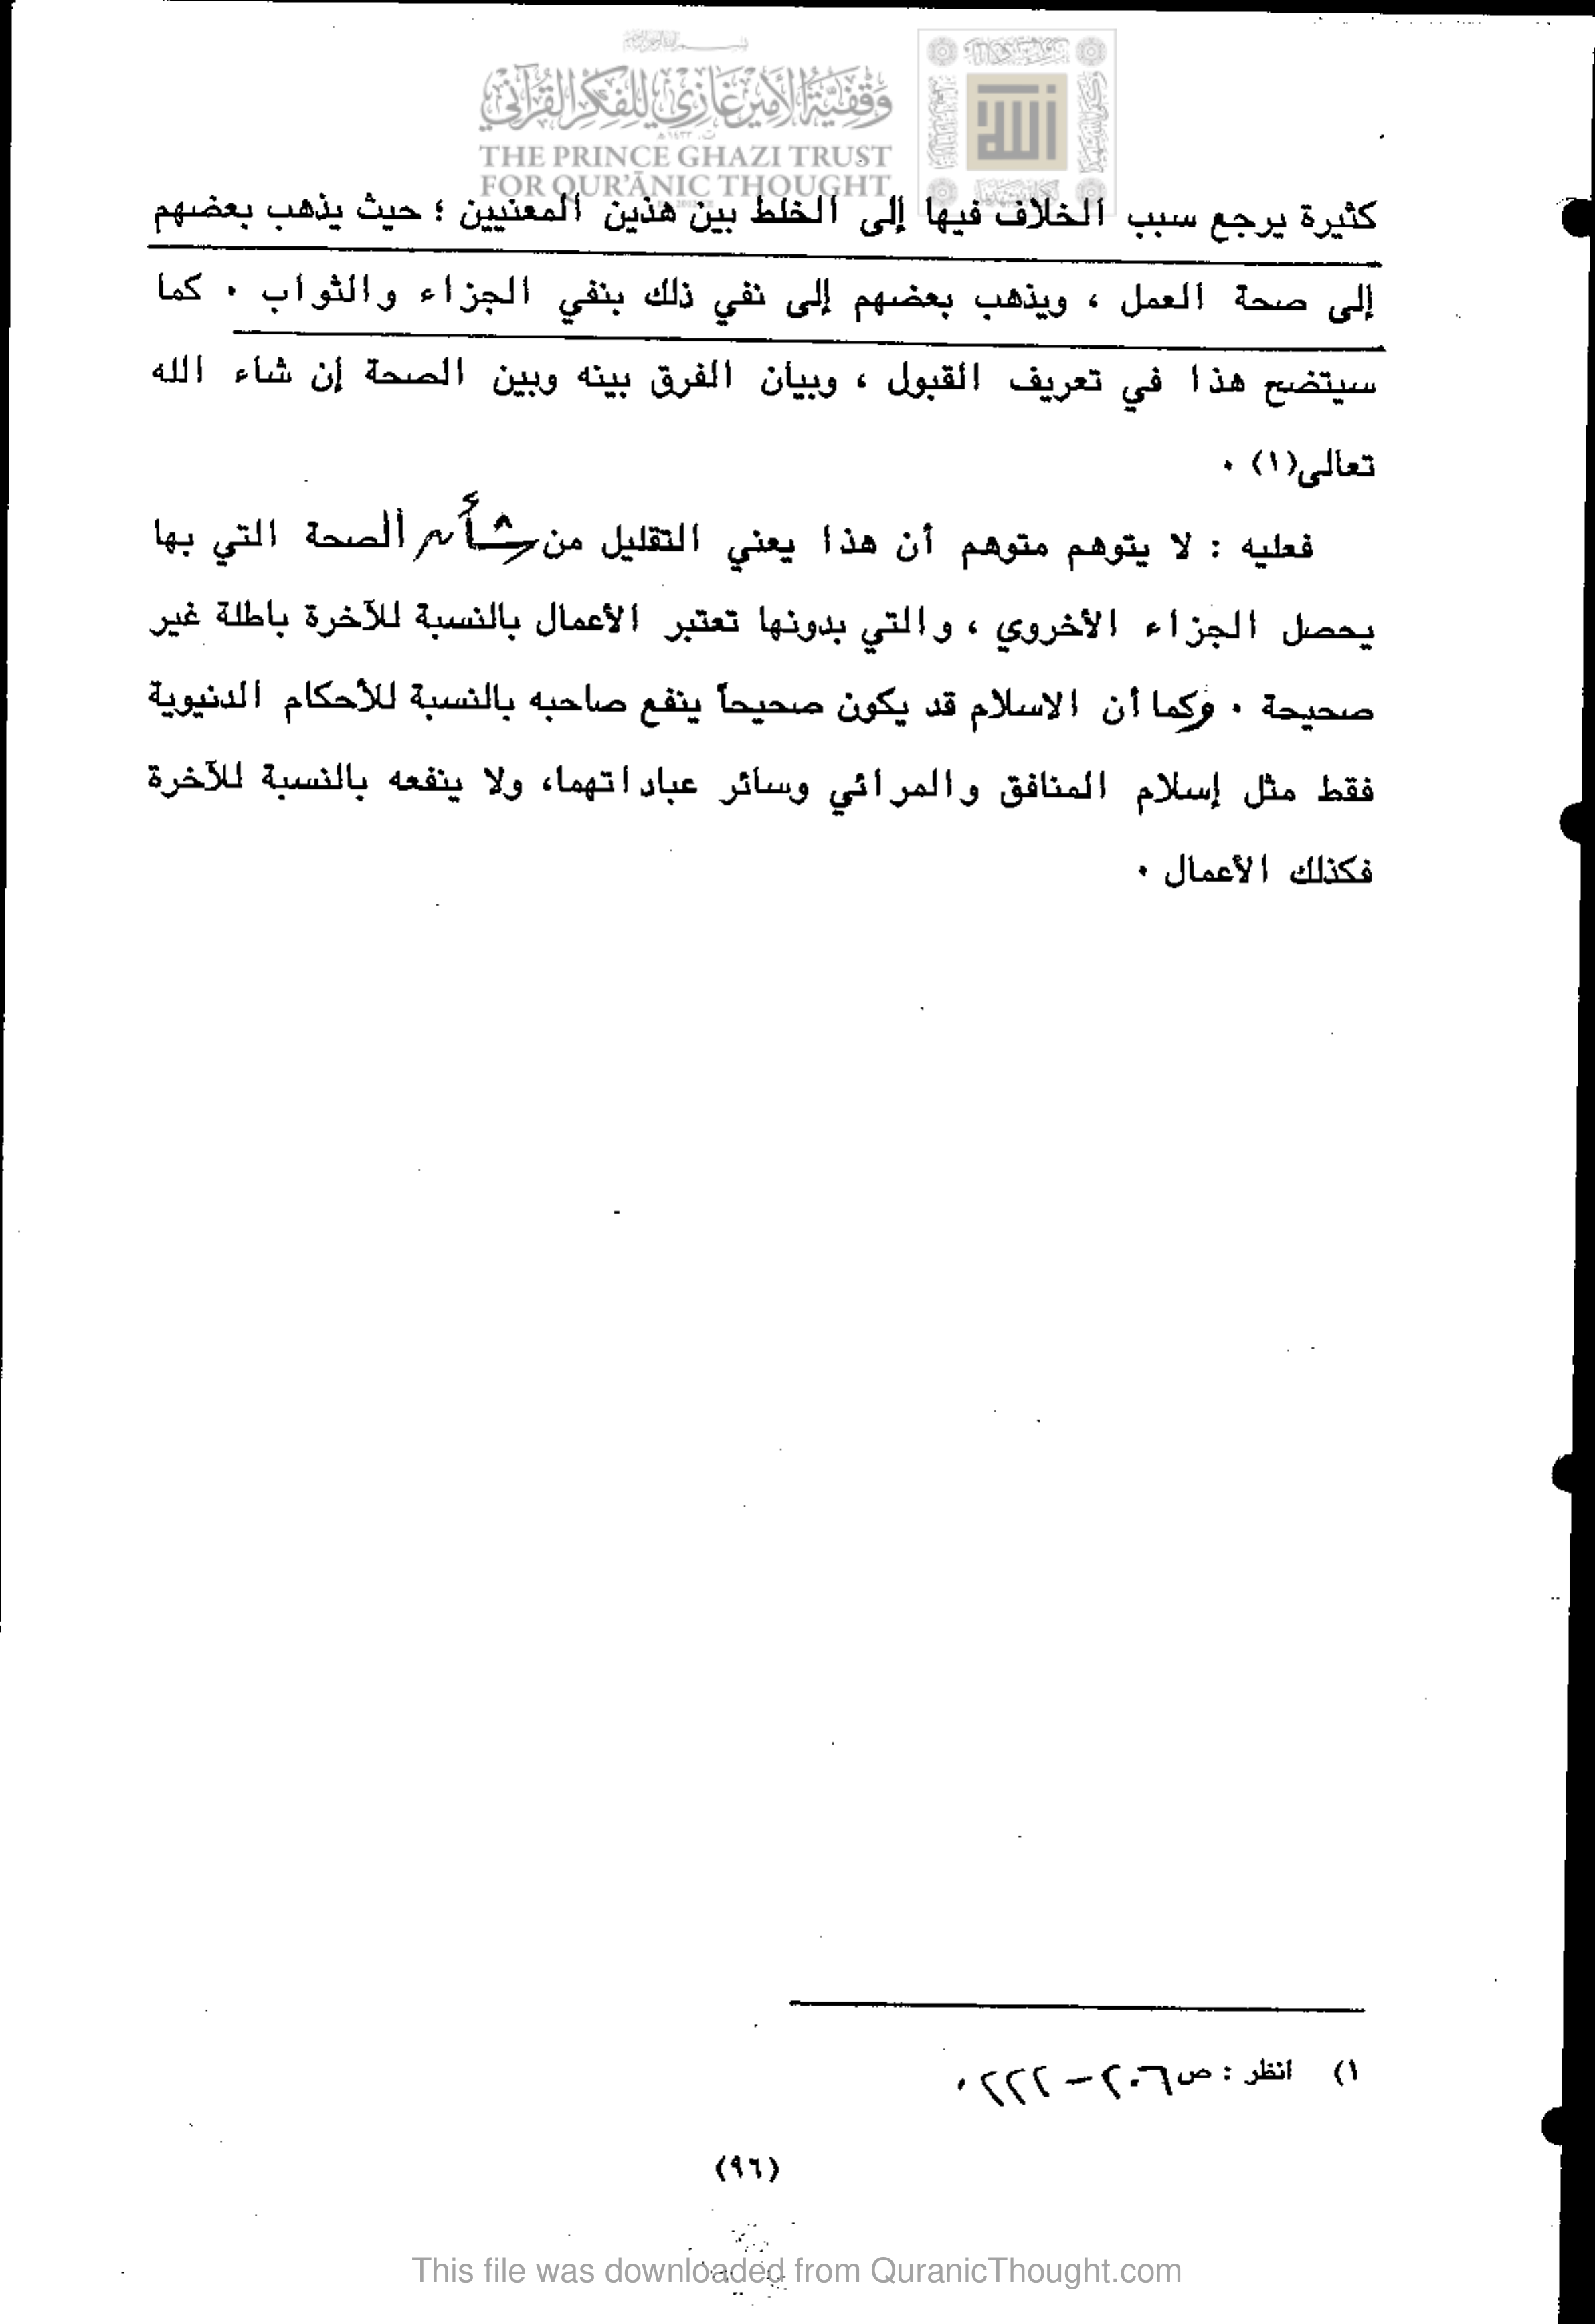 وقفية الأمير غازي للفكر القرآني
THE PRINCE GHAZI TRUST
FOR QUR'ĀNIC THOUGHT
الله
كثيرة يرجع سبب الخلاف فيها إلى الخلط بين هذين المعنيين ؛ حيث يذهب بعضهم
إلى صحة العمل ، ويذهب بعضهم إلى نفي ذلك بنفي الجزاء والثواب . كما
سيتضح هذا في تعريف القبول ، وبيان الفرق بينه وبين الصحة إن شاء الله
تعالى(١) .
فعليه : لا يتوهم متوهم أن هذا يعني التقليل من شأن الصحة التي بها
يحصل الجزاء الأخروي ، والتي بدونها تعتبر الأعمال بالنسبة للآخرة باطلة غير
صحيحة . وكما أن الاسلام قد يكون صحيحاً ينفع صاحبه بالنسبة للأحكام الدنيوية
فقط مثل إسلام المنافق والمرائي وسائر عباداتهما، ولا ينفعه بالنسبة للآخرة
فكذلك الأعمال .
١) انظر : ص ٢٠٦ - ٢٢٢ .
(٩٦)
This file was downloaded from QuranicThought.com